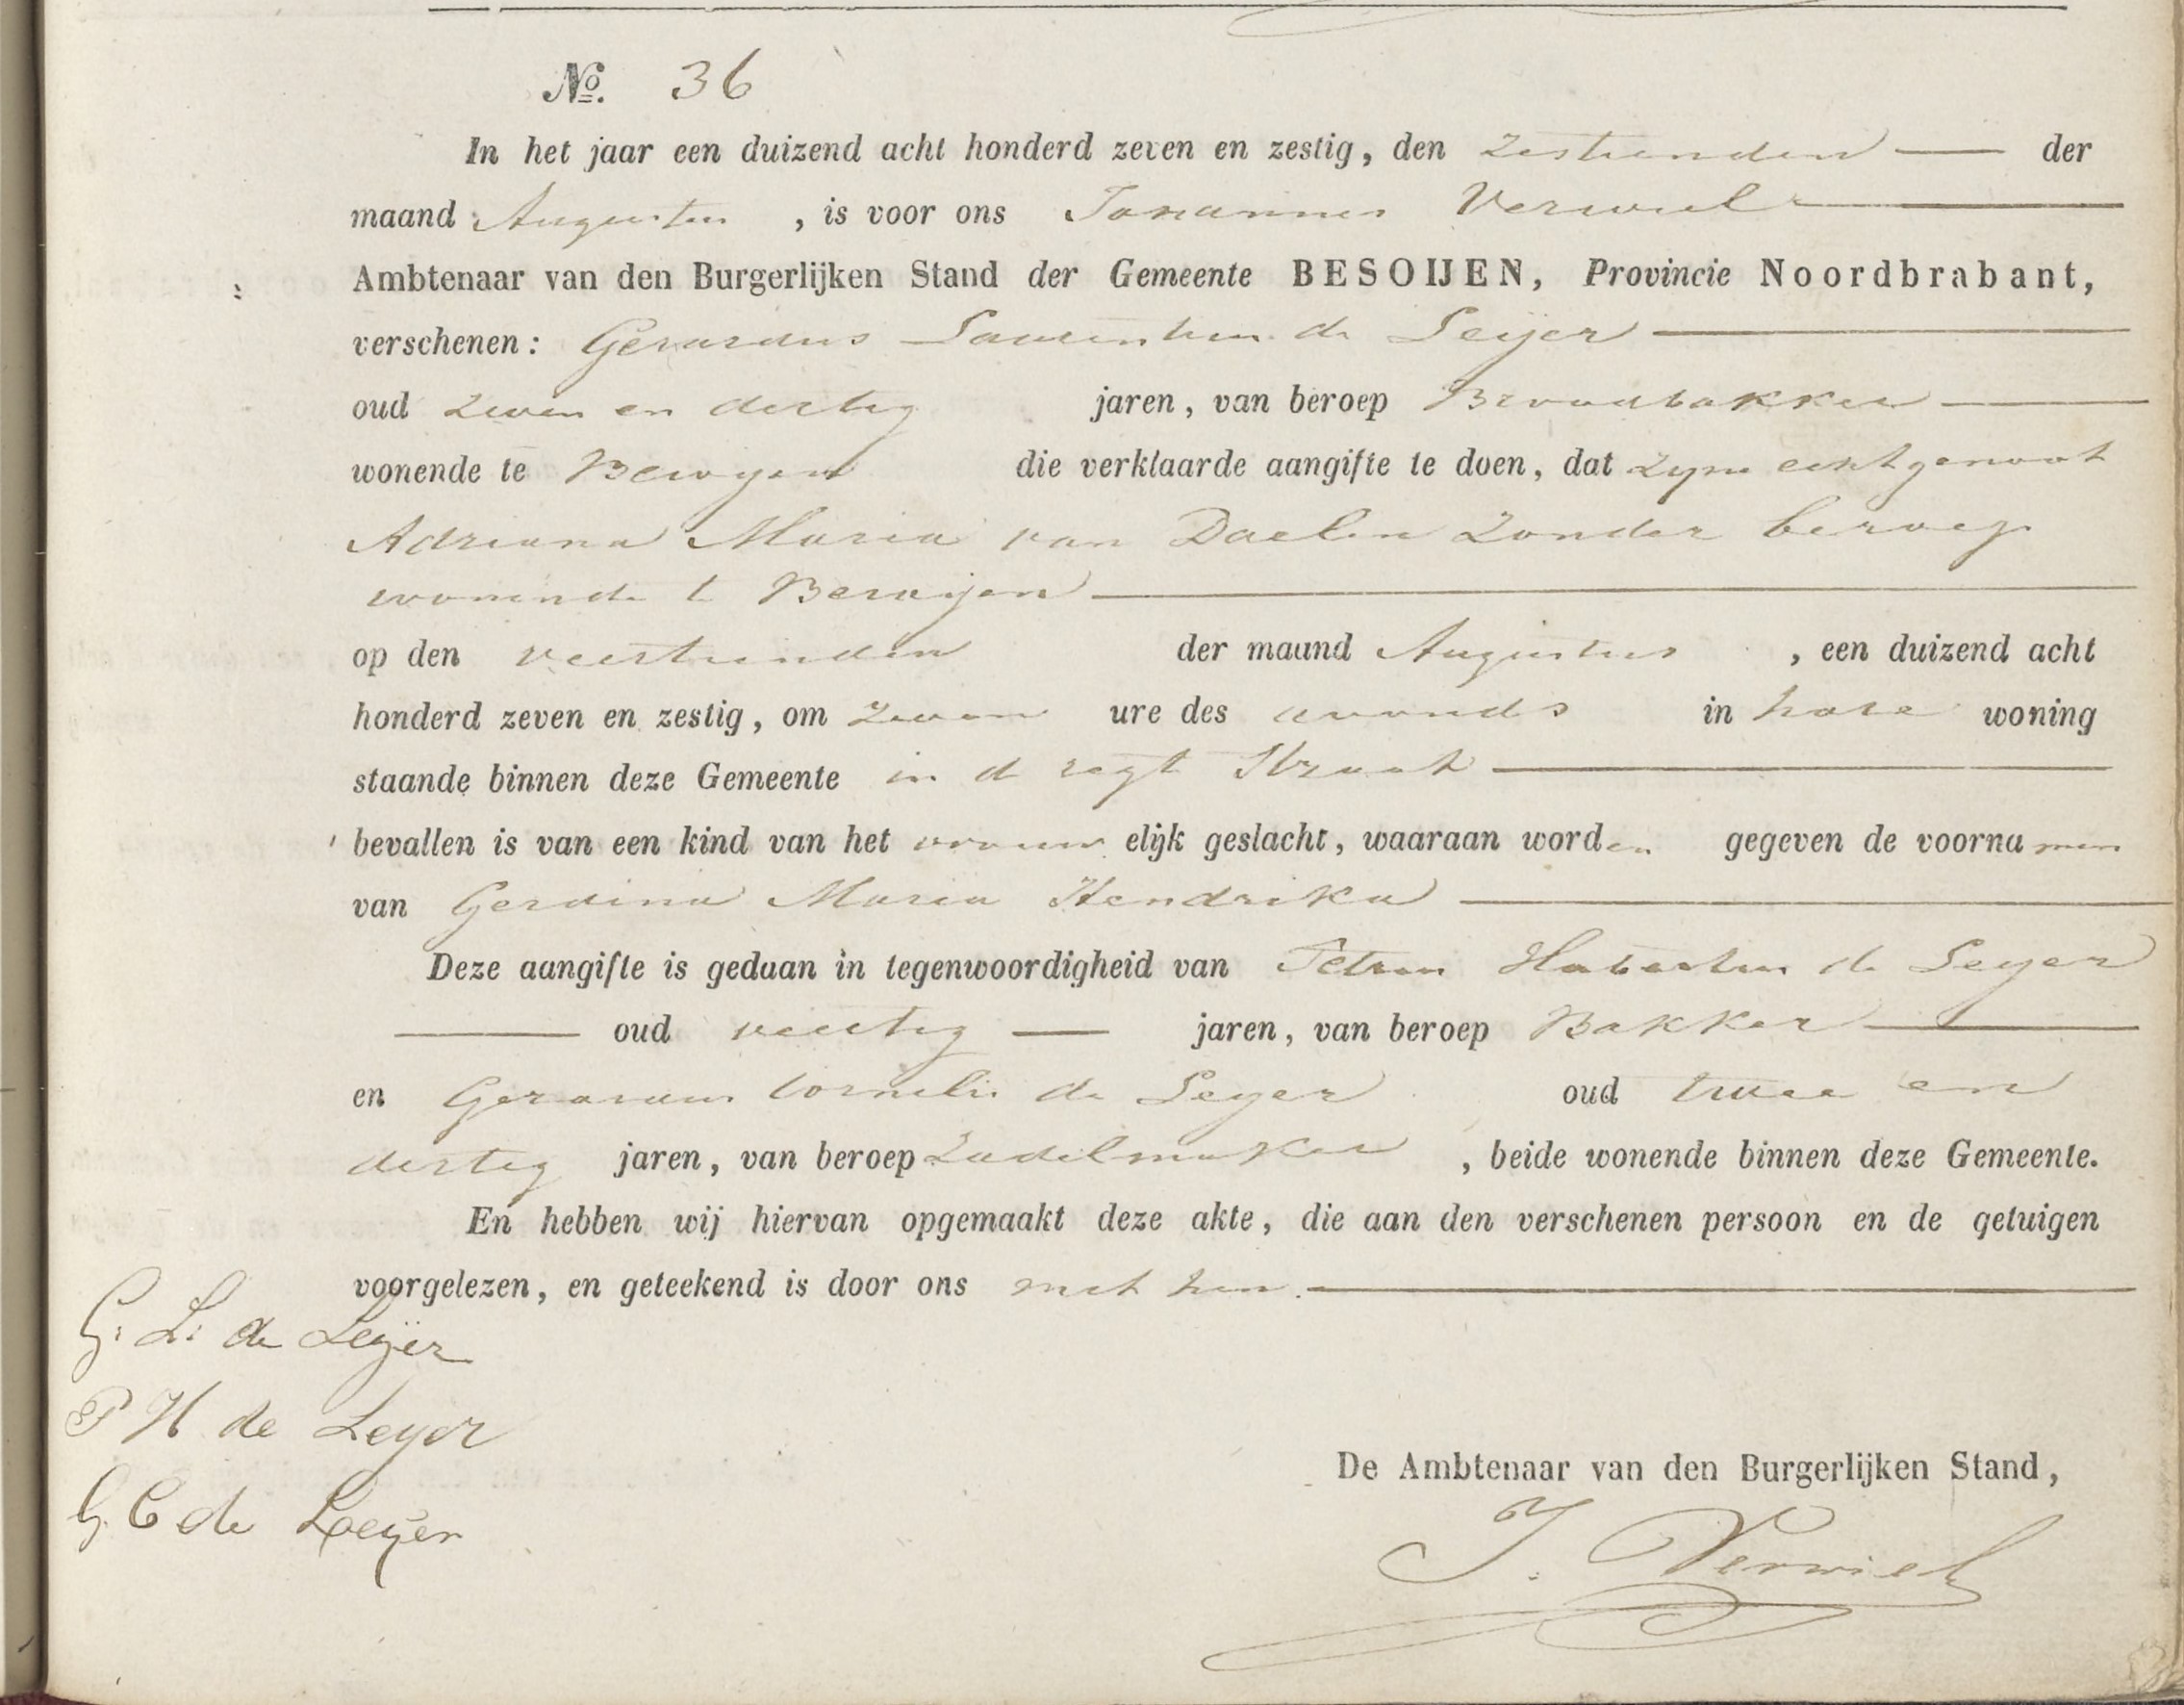 No. 36
In het jaar een duizend acht honderd zeven en zestig, den zestienden der
maand Augustus, is voor ons Johannes Verwiel
Ambtenaar van den Burgerlijken Stand der Gemeente BESOIJEN, Provincie Noordbrabant,
verschenen: Gerardus Laurentius de Leijer
oud zeven en dertig jaren, van beroep Broodbakker
wonende te Besoyen die verklaarde aangifte te doen, dat zyne echtgenoot
Adriana Maria van Daelen zonder beroep
wonende te Besoijen
op den veertienden der maand Augustus, een duizend acht
honderd zeven en zestig, om zeven ure des avonds in hare woning
staande binnen deze Gemeente in de regt Straat
bevallen is van een kind van het vrouwelijk geslacht, waaraan worden gegeven de voornamen
van Gerdina Maria Hendrika
Deze aangifte is gedaan in tegenwoordigheid van Petrus Hubertus de Leyer
oud veertig jaren, van beroep Bakker
en Gerardus Cornelis de Leyer oud twee en
dertig jaren, van beroep Zadelmaker, beide wonende binnen deze Gemeente.
En hebben wij hiervan opgemaakt deze akte, die aan den verschenen persoon en de getuigen
voorgelezen, en geteekend is door ons met hen.
G. L. de Leijer
P H de Leyer
G. C de Leyer
De Ambtenaar van den Burgerlijken Stand,
J. Verwiel